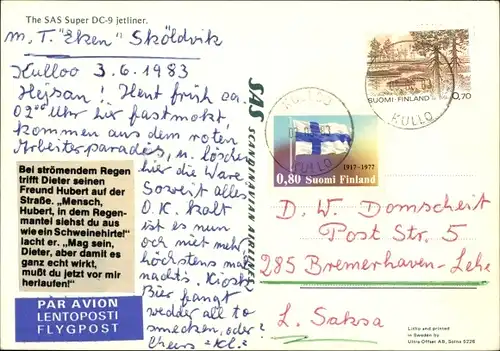 The SAS Super DC-9 jetliner.
m. T. "Eken" Sköldvik
Kulloo 3.6.1983
Hejsan! Heut früh ca.
02°° Uhr hier fastmokt,
kommen aus dem roten
Arbeiterparadies, u. löschen
hier die Ware
Soweit alles
O.K. kalt
ist es nun
och nicht mehr
höchstens mal
nachts. Kiosk
Bier fangt
wedder all to
smecken, oder
Cheers "Kl."
Bei strömendem Regen
trifft Dieter seinen
Freund Hubert auf der
Straße. „Mensch,
Hubert, in dem Regen-
mantel siehst du aus
wie ein Schweinehirte!"
lacht er. „Mag sein,
Dieter, aber damit es
ganz echt wirkt,
mußt du jetzt vor mir
herlaufen!"
PAR AVION
LENTOPOSTI
FLYGPOST
SAS SCANDINAVIAN AIRLINES
SUOMI-FINLAND 0,70
KULLO
1917-1977
0,80 Suomi Finland
KULLOO
KULLO
D. W. Domscheit
Post Str. 5
285 Bremerhaven-Lehe
L. Saksa
Litho and printed
in Sweden by
Ultra Offset AB, Solna 5228